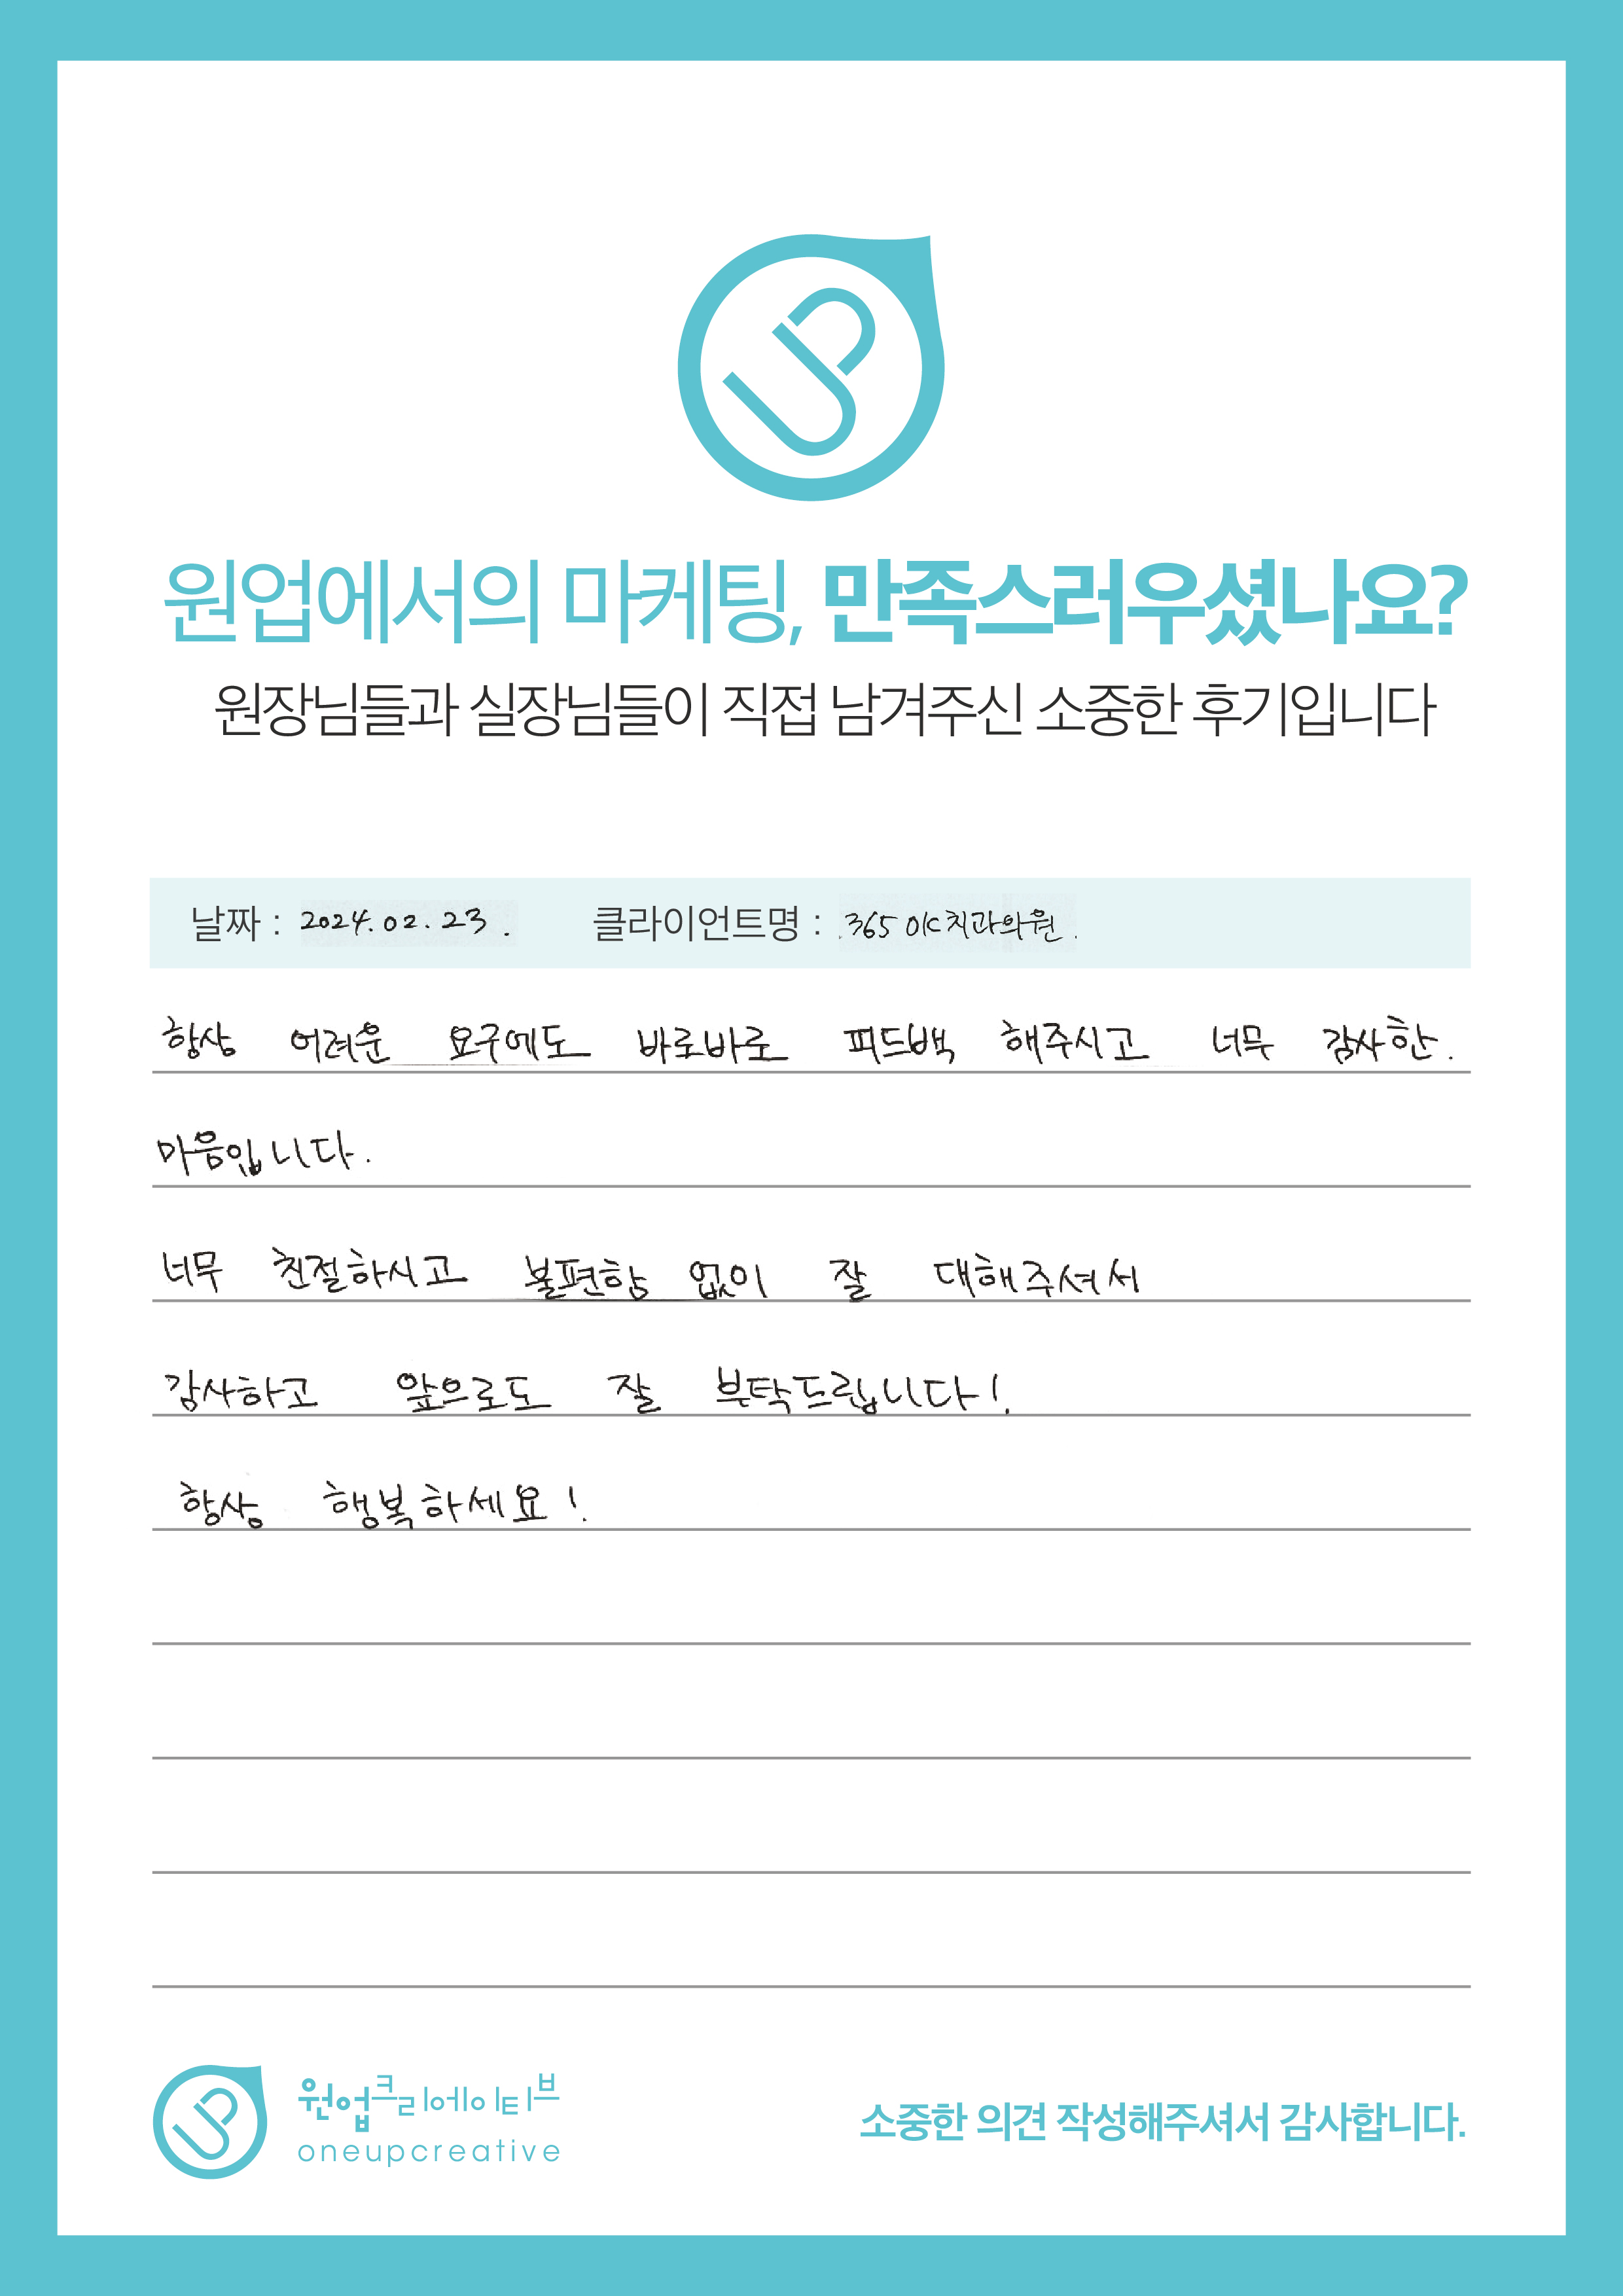 UP
원업에서의 마케팅, 만족스러우셨나요?
원장님들과 실장님들이 직접 남겨주신 소중한 후기입니다
날짜 : 2024.02.23. 클라이언트명 : 365 OK치과의원.
항상 어려운 요구에도 바로바로 피드백 해주시고 너무 감사한.
마음입니다.
너무 친절하시고 불편함 없이 잘 대해주셔서
감사하고 앞으로도 잘 부탁드립니다!
항상 행복하세요!
UP
원업크리에이티브
oneupcreative
소중한 의견 작성해주셔서 감사합니다.